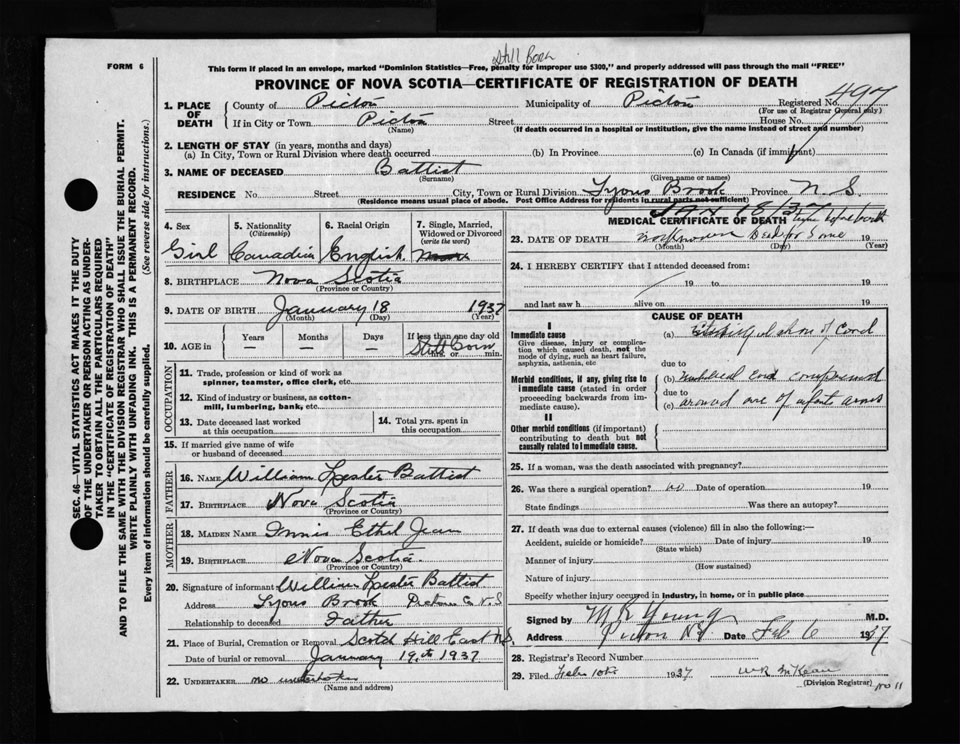 Still Born
FORM 6
This form if placed in an envelope, marked "Dominion Statistics—Free, penalty for improper use $300," and properly addressed will pass through the mail "FREE"
PROVINCE OF NOVA SCOTIA—CERTIFICATE OF REGISTRATION OF DEATH
1. PLACE OF DEATH
County of Pictou Municipality of Pictou Registered No. 497
(For use of Registrar General only)
If in City or Town Pictou Street House No.
(Name) (If death occurred in a hospital or institution, give the name instead of street and number)
2. LENGTH OF STAY (in years, months and days)
(a) In City, Town or Rural Division where death occurred (b) In Province (c) In Canada (if immigrant)
3. NAME OF DECEASED Battist
(Surname) (Given name or names)
RESIDENCE No. Street City, Town or Rural Division Lyons Brook Province N. S.
(Residence means usual place of abode. Post Office Address for residents in rural parts not sufficient)
4. Sex
Girl
5. Nationality
(Citizenship)
Canadian
6. Racial Origin
English
7. Single, Married, Widowed or Divorced
(write the word)
8. BIRTHPLACE Nova Scotia
(Province or Country)
9. DATE OF BIRTH January 18 1937
(Month) (Day) (Year)
10. AGE in
Years Months Days If less than one day old
— — — Still Born
hrs. or min.
OCCUPATION
11. Trade, profession or kind of work as spinner, teamster, office clerk, etc.
12. Kind of industry or business, as cotton-mill, lumbering, bank, etc.
13. Date deceased last worked at this occupation
14. Total yrs. spent in this occupation
15. If married give name of wife or husband of deceased
FATHER
16. NAME William Lester Battist
17. BIRTHPLACE Nova Scotia
(Province or Country)
MOTHER
18. MAIDEN NAME Innis Ethel Jean
19. BIRTHPLACE Nova Scotia
(Province or Country)
20. Signature of informant William Lester Battist
Address Lyons Brook Pictou C N S
Relationship to deceased Father
21. Place of Burial, Cremation or Removal Scotch Hill East N.S.
Date of burial or removal January 19th 1937
22. UNDERTAKER no undertaker
(Name and address)
MEDICAL CERTIFICATE OF DEATH
time before birth
23. DATE OF DEATH unknown Dead for some 19
(Month) (Day) (Year)
24. I HEREBY CERTIFY that I attended deceased from:
19 to 19
and last saw h alive on 19
CAUSE OF DEATH
I
Immediate cause
Give disease, injury or complication which caused death, not the mode of dying, such as heart failure, asphyxia, asthenia, etc
(a) of Cord
due to
Morbid conditions, if any, giving rise to immediate cause (stated in order proceeding backwards from immediate cause).
(b) cord compressed
due to
(c) around one of infants arms
II
Other morbid conditions (if important) contributing to death but not causally related to immediate cause.
25. If a woman, was the death associated with pregnancy?
26. Was there a surgical operation? no Date of operation 19
State findings Was there an autopsy?
27. If death was due to external causes (violence) fill in also the following:—
Accident, suicide or homicide? Date of injury 19
(State which)
Manner of injury
(How sustained)
Nature of injury
Specify whether injury occurred in industry, in home, or in public place
Signed by M R Young M.D.
Address Pictou N.S Date Feb 6 1937
28. Registrar's Record Number
29. Filed Feb 10th 1937 McKean
(Division Registrar) No 11
SEC. 46—VITAL STATISTICS ACT MAKES IT THE DUTY
OF THE UNDERTAKER OR PERSON ACTING AS UNDER-
TAKER TO OBTAIN ALL THE PARTICULARS REQUIRED
IN THE "CERTIFICATE OF REGISTRATION OF DEATH"
AND TO FILE THE SAME WITH THE DIVISION REGISTRAR WHO SHALL ISSUE THE BURIAL PERMIT.
WRITE PLAINLY WITH UNFADING INK. THIS IS A PERMANENT RECORD.
Every item of information should be carefully supplied. (See reverse side for instructions.)